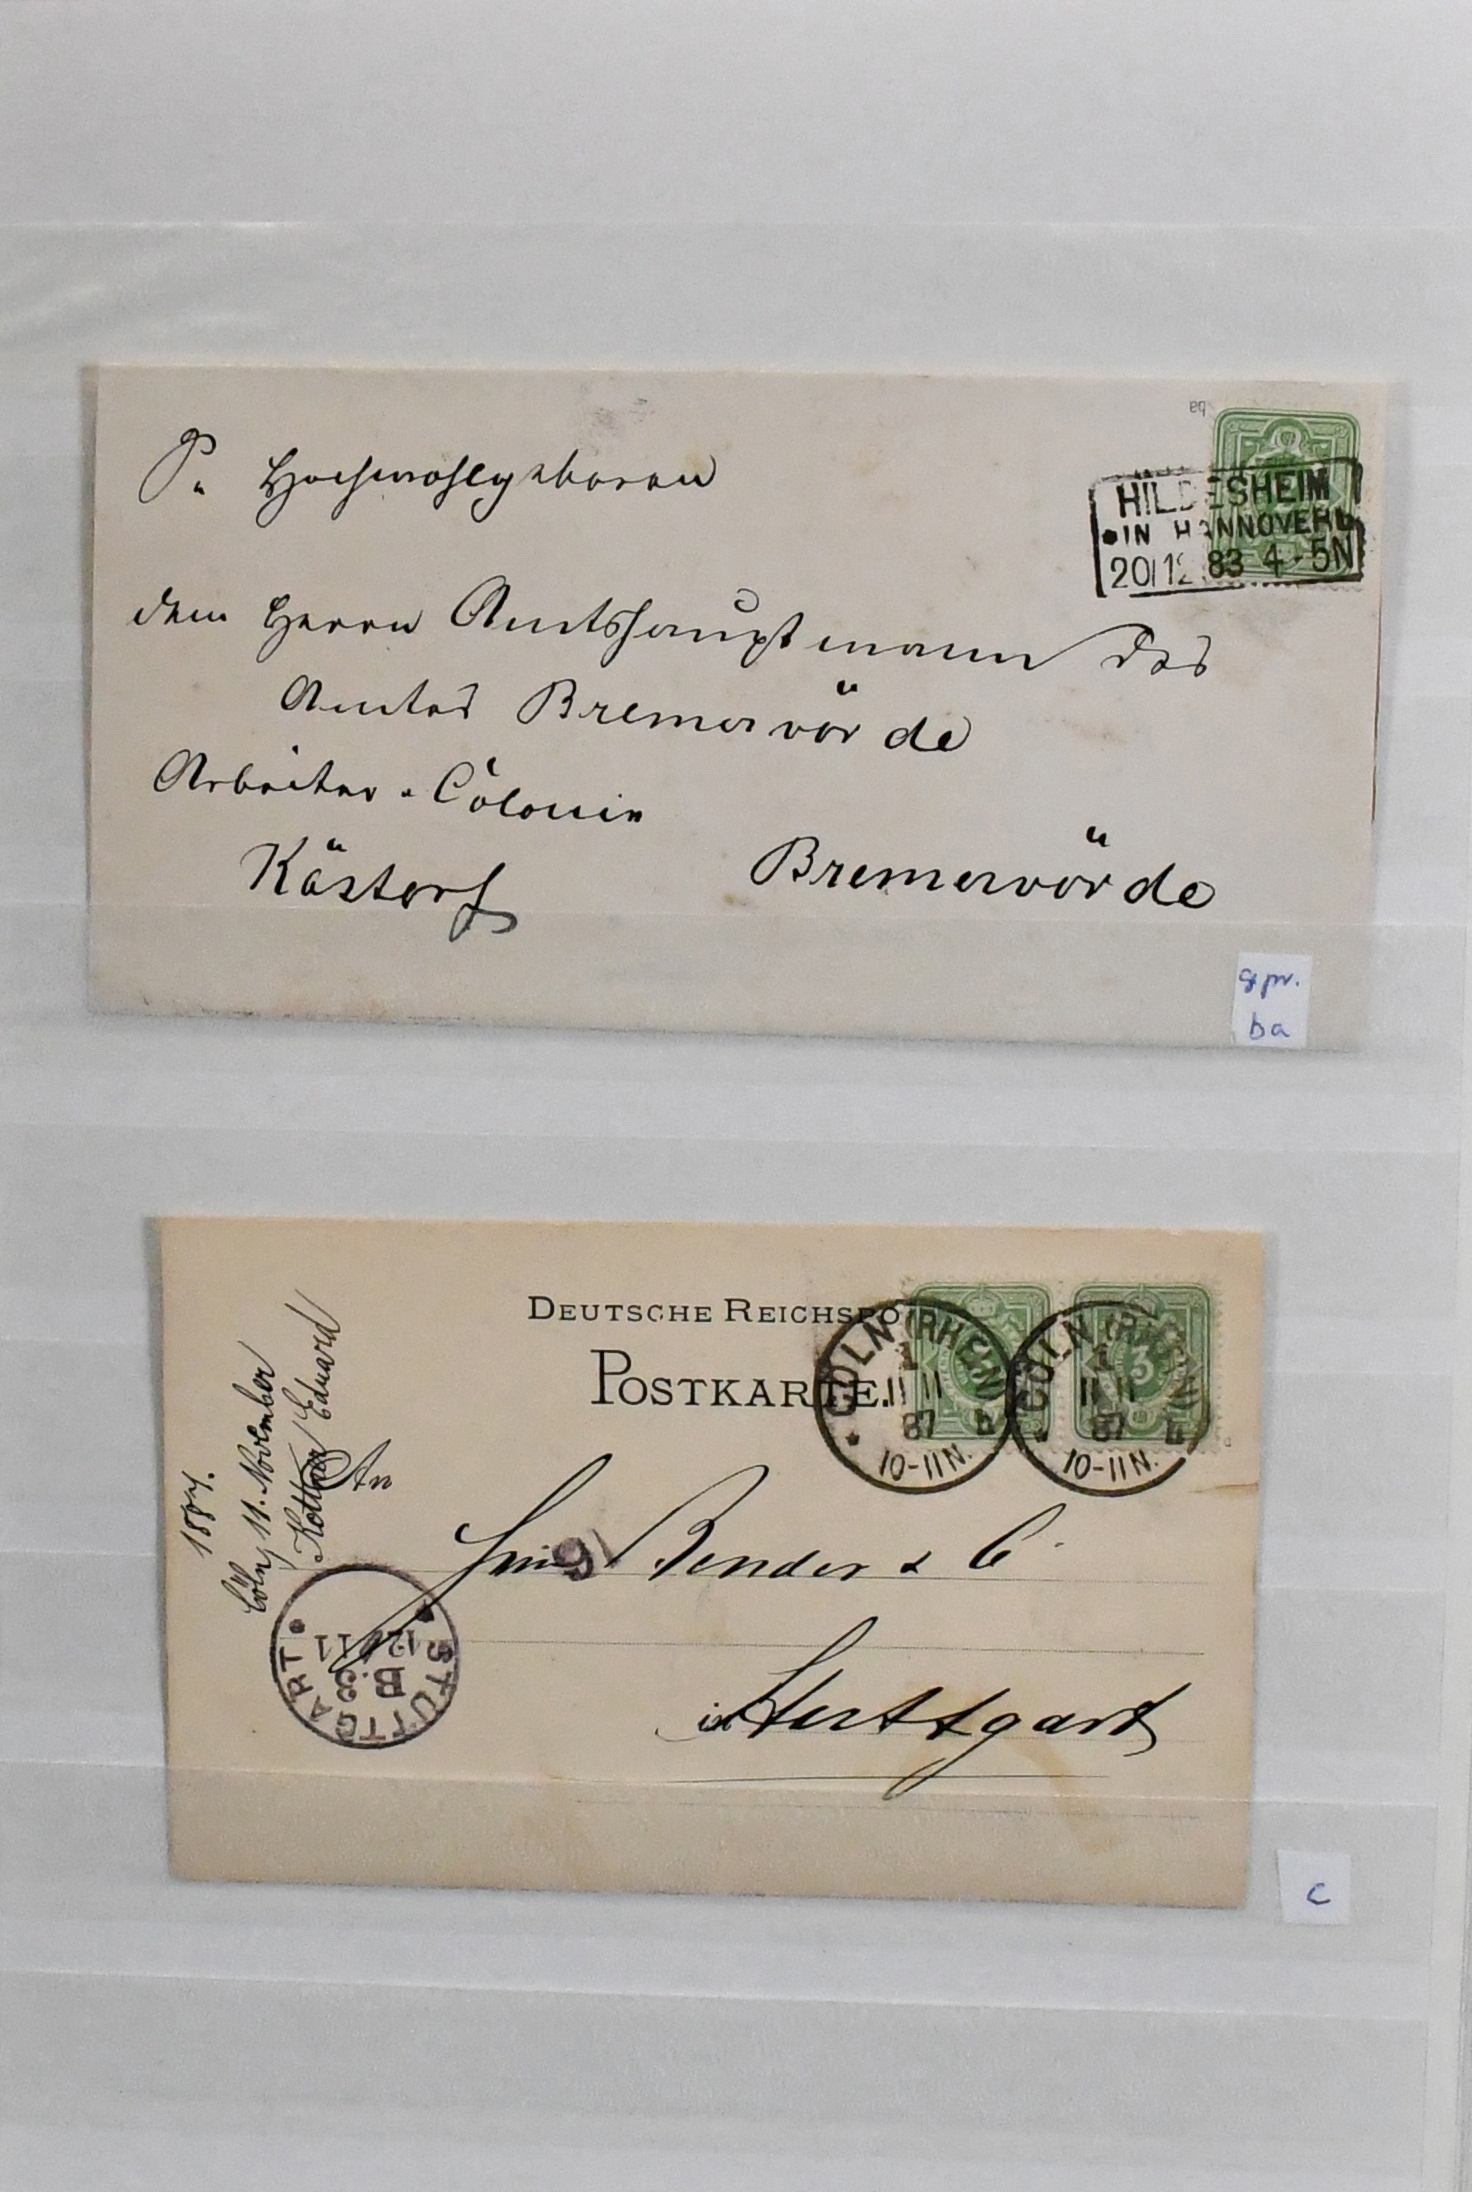 ba
Hochwohlgeboren
HILDESHEIM
IN HANNOVER
20/12 83 4-5N
dem Herrn Amtshauptmann des
Amtes Bremervörde
Arbeiter-Colonie
Kästorf
Bremervörde
gpr.
ba
DEUTSCHE REICHSPO
POSTKARTE.
CÖLN (RHEIN)
1
11 11
87
10-11N.
CÖLN (RHEIN)
1
11 11
87
10-11N.
3
1887.
Cöln, 11. November
Eduard
An
Bender & C
in Stuttgart
STUTTGART
B.3
12/11
c